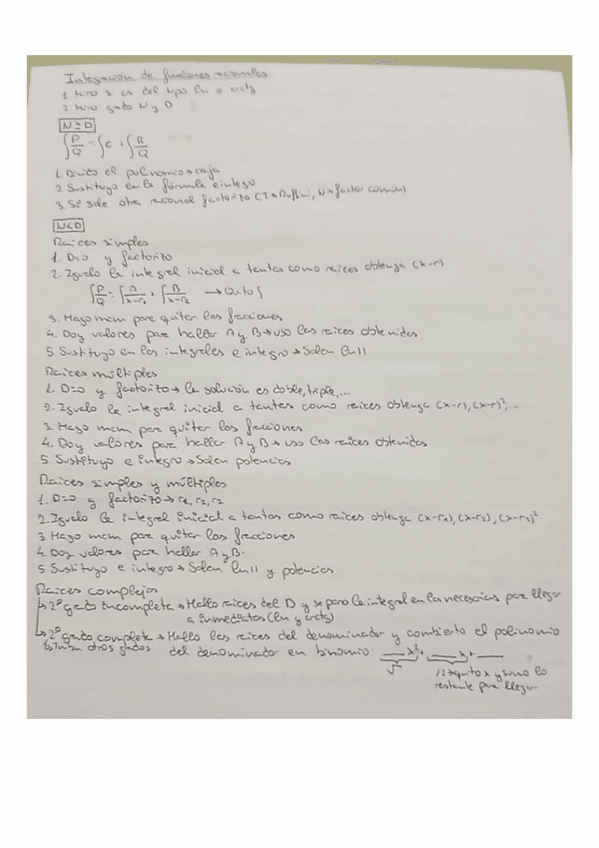 Integración de funciones racionales
1. Miro si es del tipo ln o arctg
2. Miro grado N y D
N≥D
∫P/Q = ∫C + ∫R/Q
1. Divido el polinomio → caja
2. Sustituyo en la fórmula e integro
3. Si sale otra racional factorizo (T → Ruffini, N → factor común)
N<D
Raices simples
1. D=0 y factorizo
2. Igualo la integral inicial a tantas como raices obtenga (x-r)
∫P/Q = ∫A/x-r₁ + ∫B/x-r₂ → Quito ∫
3. Hago mcm para quitar las fracciones
4. Doy valores para hallar A y B → uso las raices obtenidas
5. Sustituyo en las integrales e integro → Salen ln||
Raices múltiples
1. D=0 y factorizo → la solución es doble, triple,...
2. Igualo la integral inicial a tantas como raices obtenga (x-r), (x-r)²,...
3. Hago mcm para quitar las fracciones
4. Doy valores para hallar A y B → uso las raices obtenidas
5. Sustituyo e integro → Salen potencias
Raices simples y múltiples
1. D=0 y factorizo → r₁, r₂, r₂
2. Igualo la integral inicial a tantas como raices obtenga (x-r₁), (x-r₂), (x-r₂)²
3. Hago mcm para quitar las fracciones
4. Doy valores para hallar A y B
5. Sustituyo e integro → Salen ln|| y potencias
Raices complejas
↳ 2º grado incompleta → Hallo raices del D y separo la integral en las necesarias para llegar
a inmediatas (ln y arctg)
↳ 2º grado completa → Hallo las raices del denominador y combierto el polinomio
otros grados del denominador en binomio: __x² + __x + __
√² /2 → quito x y sumo lo
restante para llegar